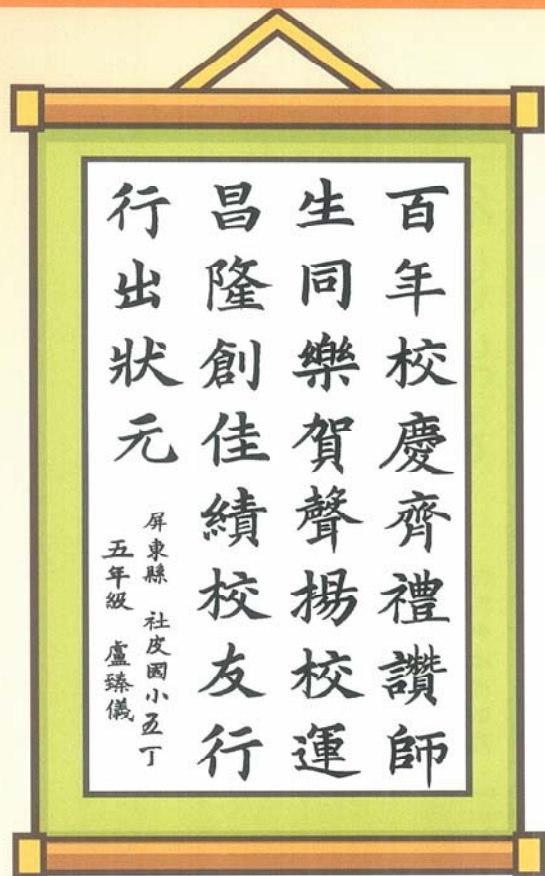 百年校慶齊禮讚師
生同樂賀聲揚校運
昌隆創佳績校友行
行出狀元
屏東縣 社皮國小五丁
五年級 盧臻儀